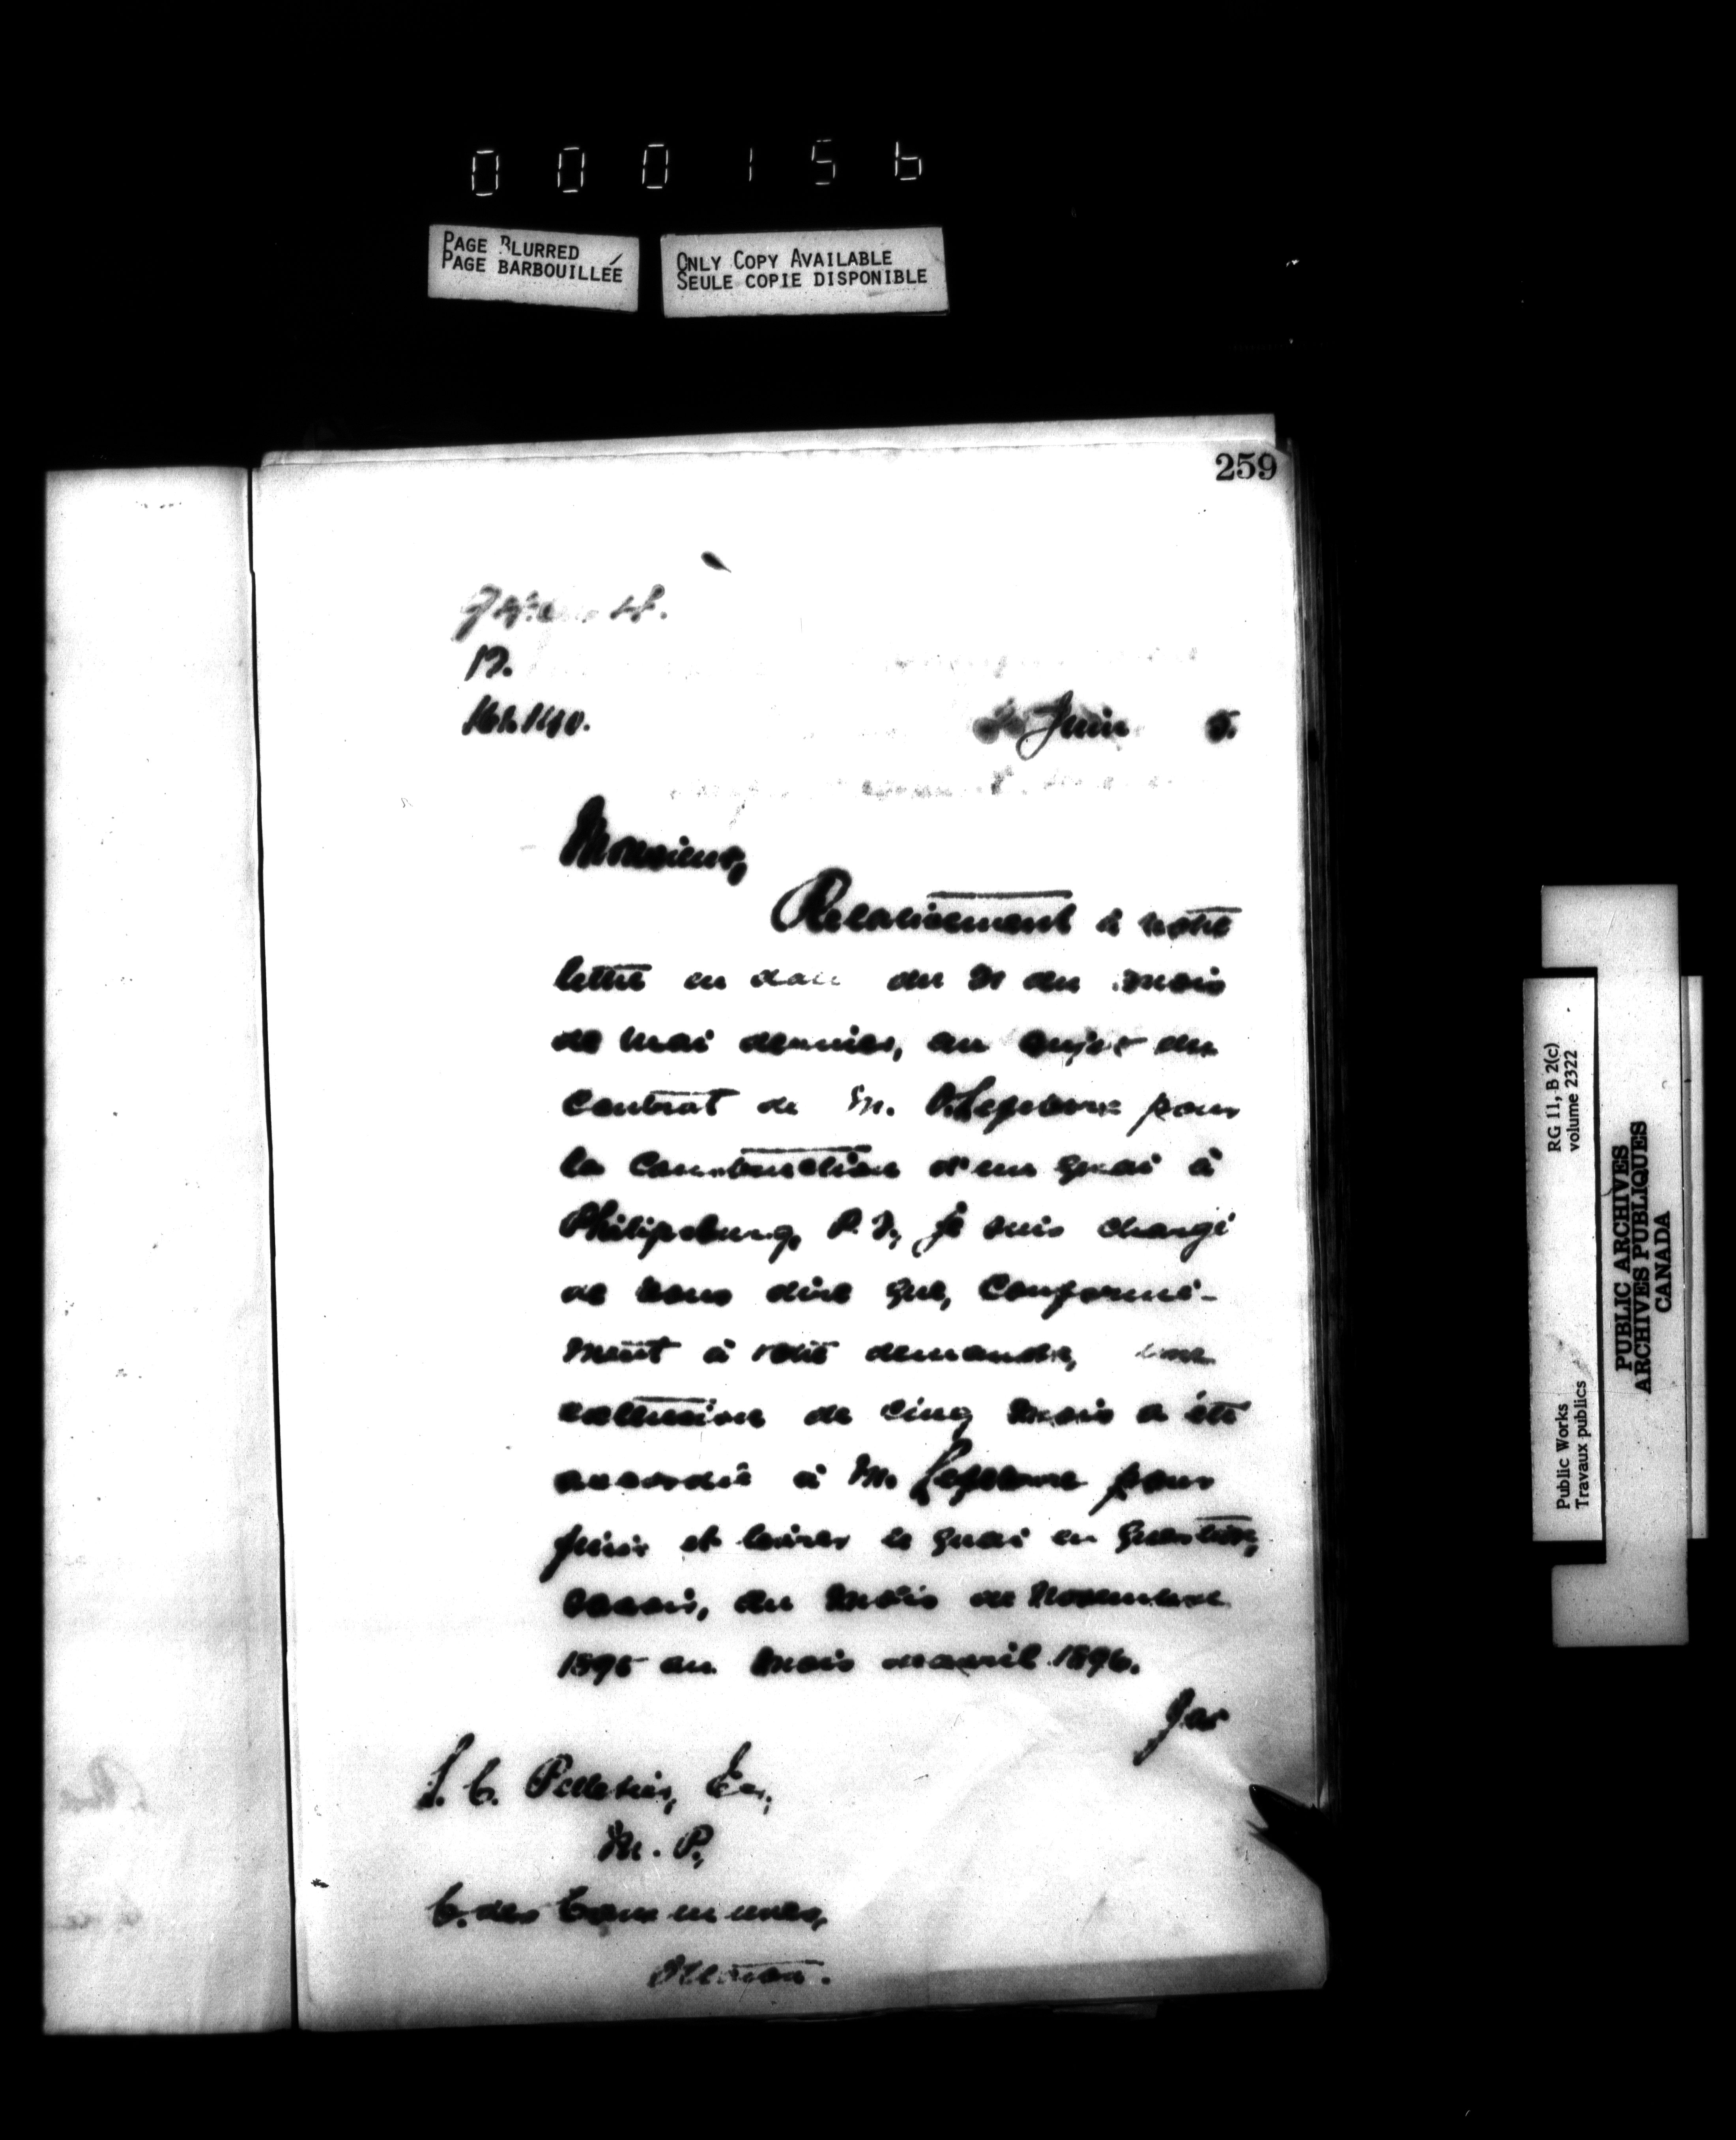 000156
PAGE BLURRED
PAGE BARBOUILLÉE
ONLY COPY AVAILABLE
SEULE COPIE DISPONIBLE
259
Juin 5.
Monsieur,
Relativement à votre
lettre en date du du mois
de Mai dernier, au sujet du
Contrat de M. Lefebvre pour
la Construction d'un quai à
Philipsburg, P. Q., je suis chargé
de vous dire que, Conformé-
ment à votre demande, une
extension de cinq mois a été
accordée à M. Lefebvre pour
finir et livrer le quai en question,
savoir, du mois de Novembre
1895 au mois d'avril 1896.
L. C. Pelletier, Ecr,
M. P.,
C. des Communes,
Ottawa.
RG 11, B 2(c)
volume 2322
Public Works
Travaux publics
PUBLIC ARCHIVES
ARCHIVES PUBLIQUES
CANADA